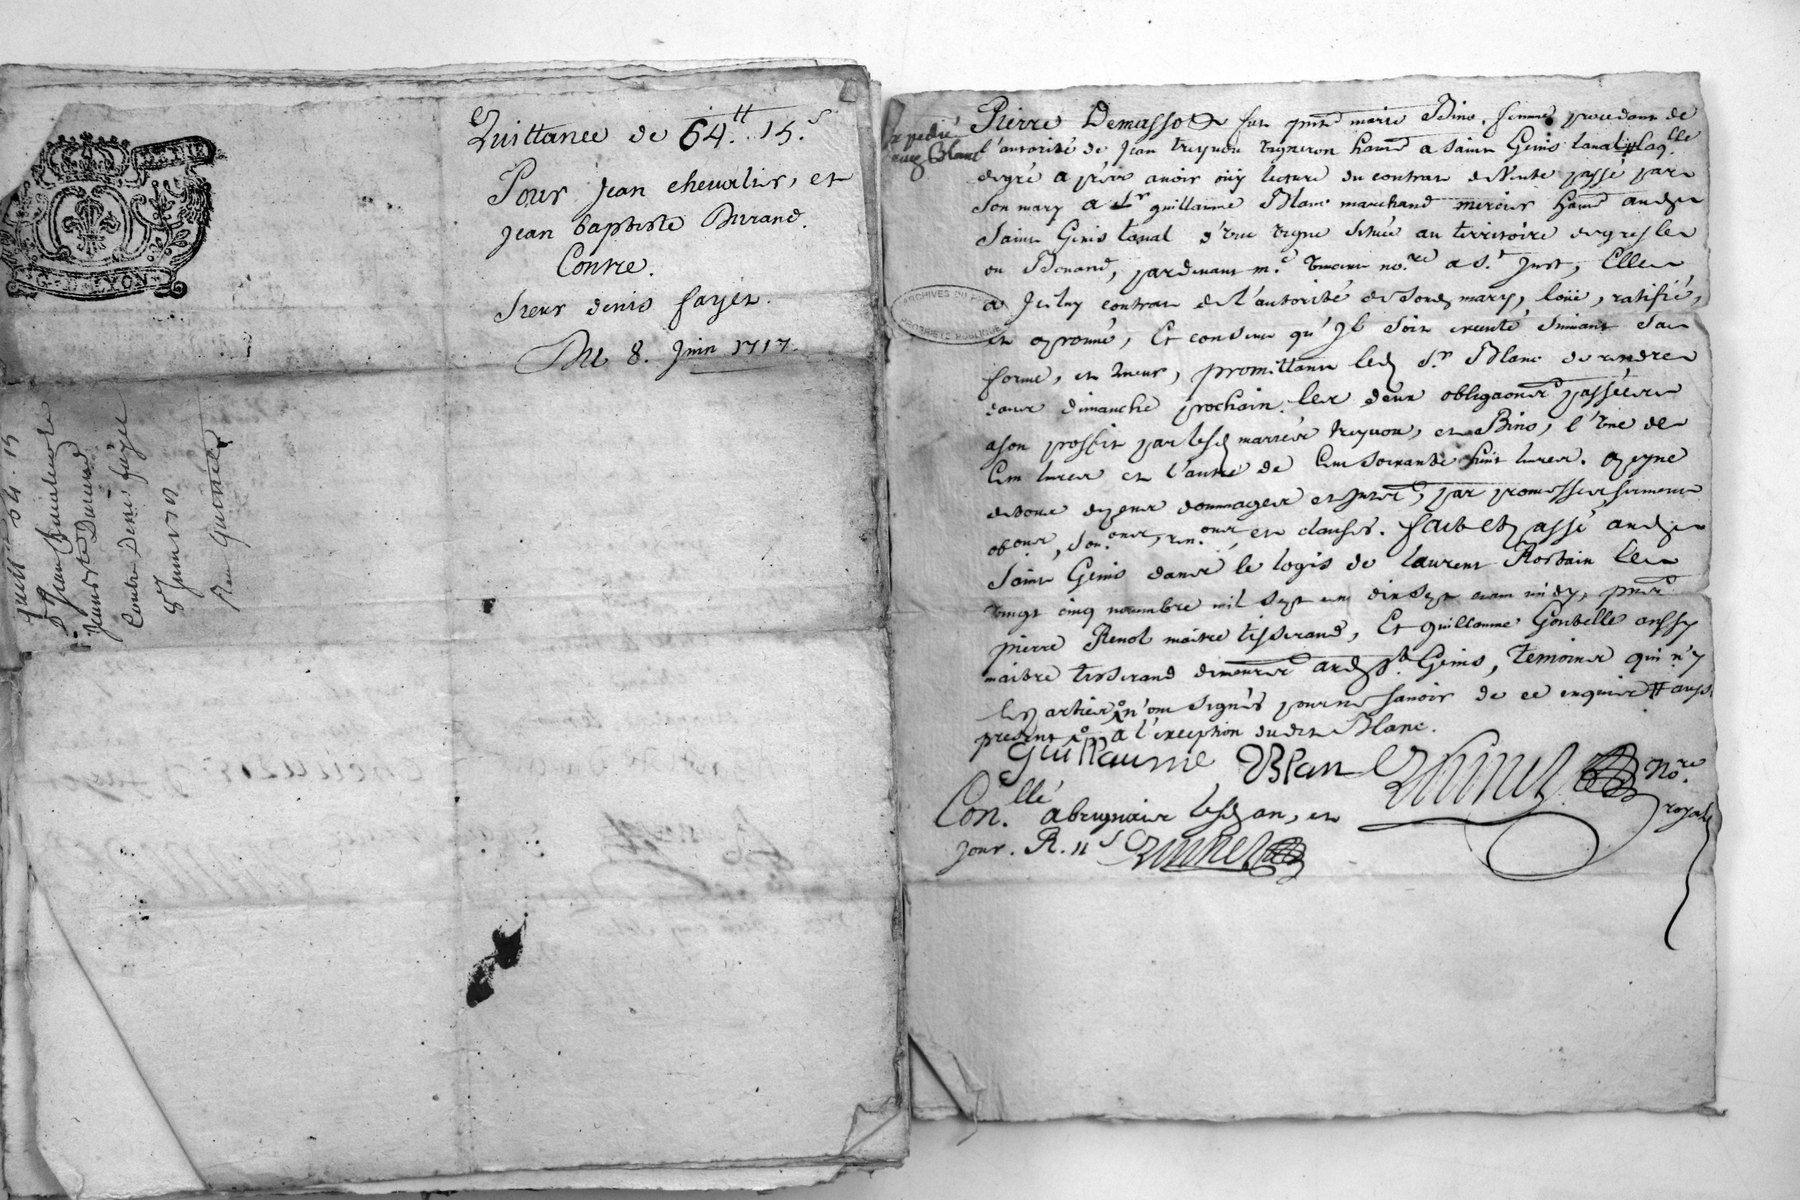 G. DE LYON
Quittance de 64ᵗᵗ. 15.ˢ
Pour Jean chevalier, et
Jean baptiste Durand.
Contre.
Sieur denis fayet.
Du 8. Juin 1717.
quitt de 64 . 15
Jean Chevalier &
Jean bte Durand
Contre Denis fayet
8e Juin 1717
Expedié
aud Blanc
Pierre Demasso fut pnte marie Bino, femme procedant de
l'autorité de Jean treyuou vigneron habt a Saint Genis Laual # laqlle
degré a près auoir oüy lecture du contrat de Vente passé par
son mary a Sr guillaume Blanc marchand mercier habt aud
Saint Genis laual d'vne vigne située au territoire de
ou Bouand, pardeuant m.e no.re a S.t Just, Elle
a Jceluy contrat de l'autorité de sond mary, loüé, ratifié,
et aprouué, Et consent qu'Jl soit executé suiuant sa
forme, et teneur, promettant led Sr. Blanc de rendre
dans dimanche prochain les deux obligaons passées
a son proffit par lesd mariés treyuou, et Bino, l'vne de
Cent liures et l'autre de Cent soixante huit liures. a peyne
de tous depens dommages et Jnterests, par promesses serment
obons, sou.ons, ren.ons, et clauses. fait et passé aud
Saint Genis dans le logis de laurent Rostain le
vingt cinq nouembre mil sept cent dix sept auant midy, pnts
pierre Renol maitre tisserand, Et guillaume Gontelle aussy
maitre tisserand demeurants aud St. Genis, temoins qui n'y
les parties n'ont signés pour ne sauoir de ce enquis # aussy
present a l'exception dudit Blanc.
Guillaume Blanc
No.re
royal
Con.llé a brignais lesd an, et
jour. R. 11 s